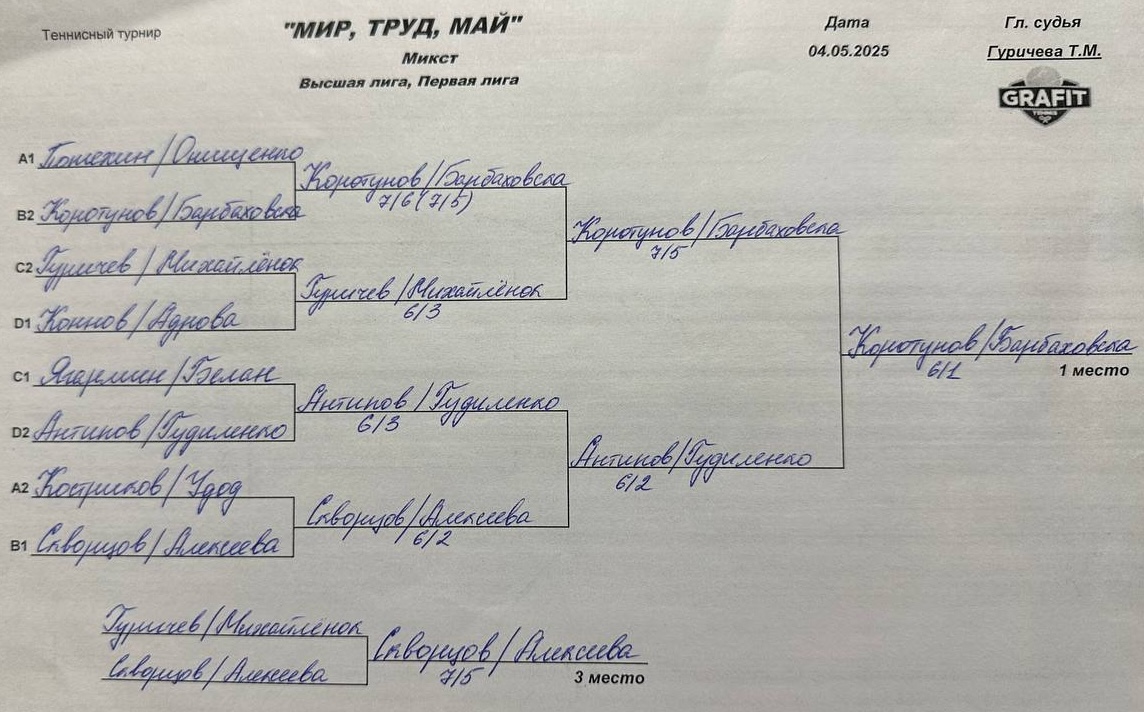 Теннисный турнир
"МИР, ТРУД, МАЙ"
Микст
Высшая лига, Первая лига
Дата
04.05.2025
Гл. судья
Гуричева Т.М.
GRAFIT
TENNIS
A1 Потехин/Онищенко
B2 Коротунов/Барбаховска
Коротунов/Барбаховска
7/6 (7/5)
C2 Гуричев/Михайлёнок
D1 Коннов/Адрова
Гуричев/Михайлёнок
6/3
Коротунов/Барбаховска
7/5
C1 Ягармин/Белан
D2 Антипов/Гудиленко
Антипов/Гудиленко
6/3
A2 Костриков/Удод
B1 Скворцов/Алексеева
Скворцов/Алексеева
6/2
Антипов/Гудиленко
6/2
Коротунов/Барбаховска
6/1
1 место
Гуричев/Михайлёнок
Скворцов/Алексеева
Скворцов/Алексеева
7/5
3 место